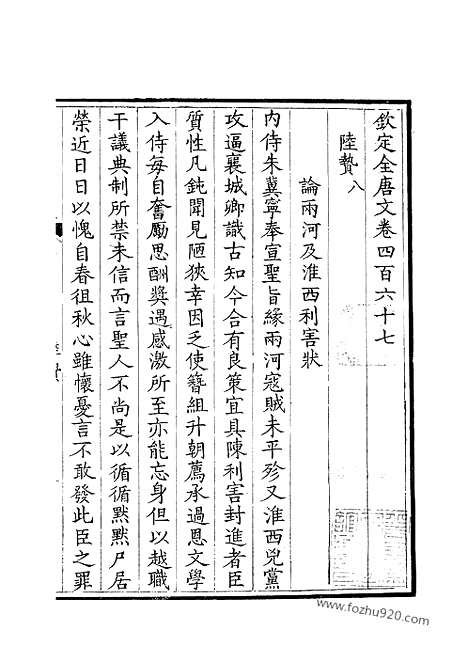 欽定全唐文卷四百六十七
陸贄八
論兩河及淮西利害狀
內侍朱冀寧奉宣聖旨緣兩河寇賊未平殄又淮西兇黨
攻逼襄城卿識古知今合有良策宜具陳利害封進者臣
質性凡鈍聞見陋狹幸因乏使簪組升朝薦承過恩文學
入侍每自奮勵思酬獎遇感激所至亦能忘身但以越職
干議典制所禁未信而言聖人不尚是以循循默默尸居
榮近日日以愧自春徂秋心雖懷憂言不敢發此臣之罪
www.fozhu920.com